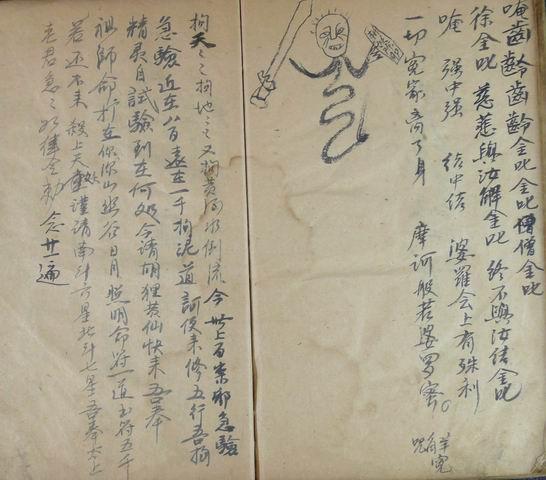 唵齒齡齒齡金吒金吒僧僧金吒
徐金吒 慈悲與汝解金吒 終不與汝結金吒
唵 强中强 結中結 婆羅会上有殊利
一切冤家离了身 摩訶般若婆罗蜜。
解冤咒
拘天々々拘地々々又拘黄河水倒流今世上百案即急驗
急驗近在八百遠在一千拘泥道訶便来修五行吾拘
精灵自試驗到在何处今請胡狸黄仙快来吾奉
祖師命扵在你深山幽谷日月照明命符一道玉符五千
若还不来殺上天謹請南斗六星北斗七星吾奉太上
老君急々如律令勅 念廿一遍